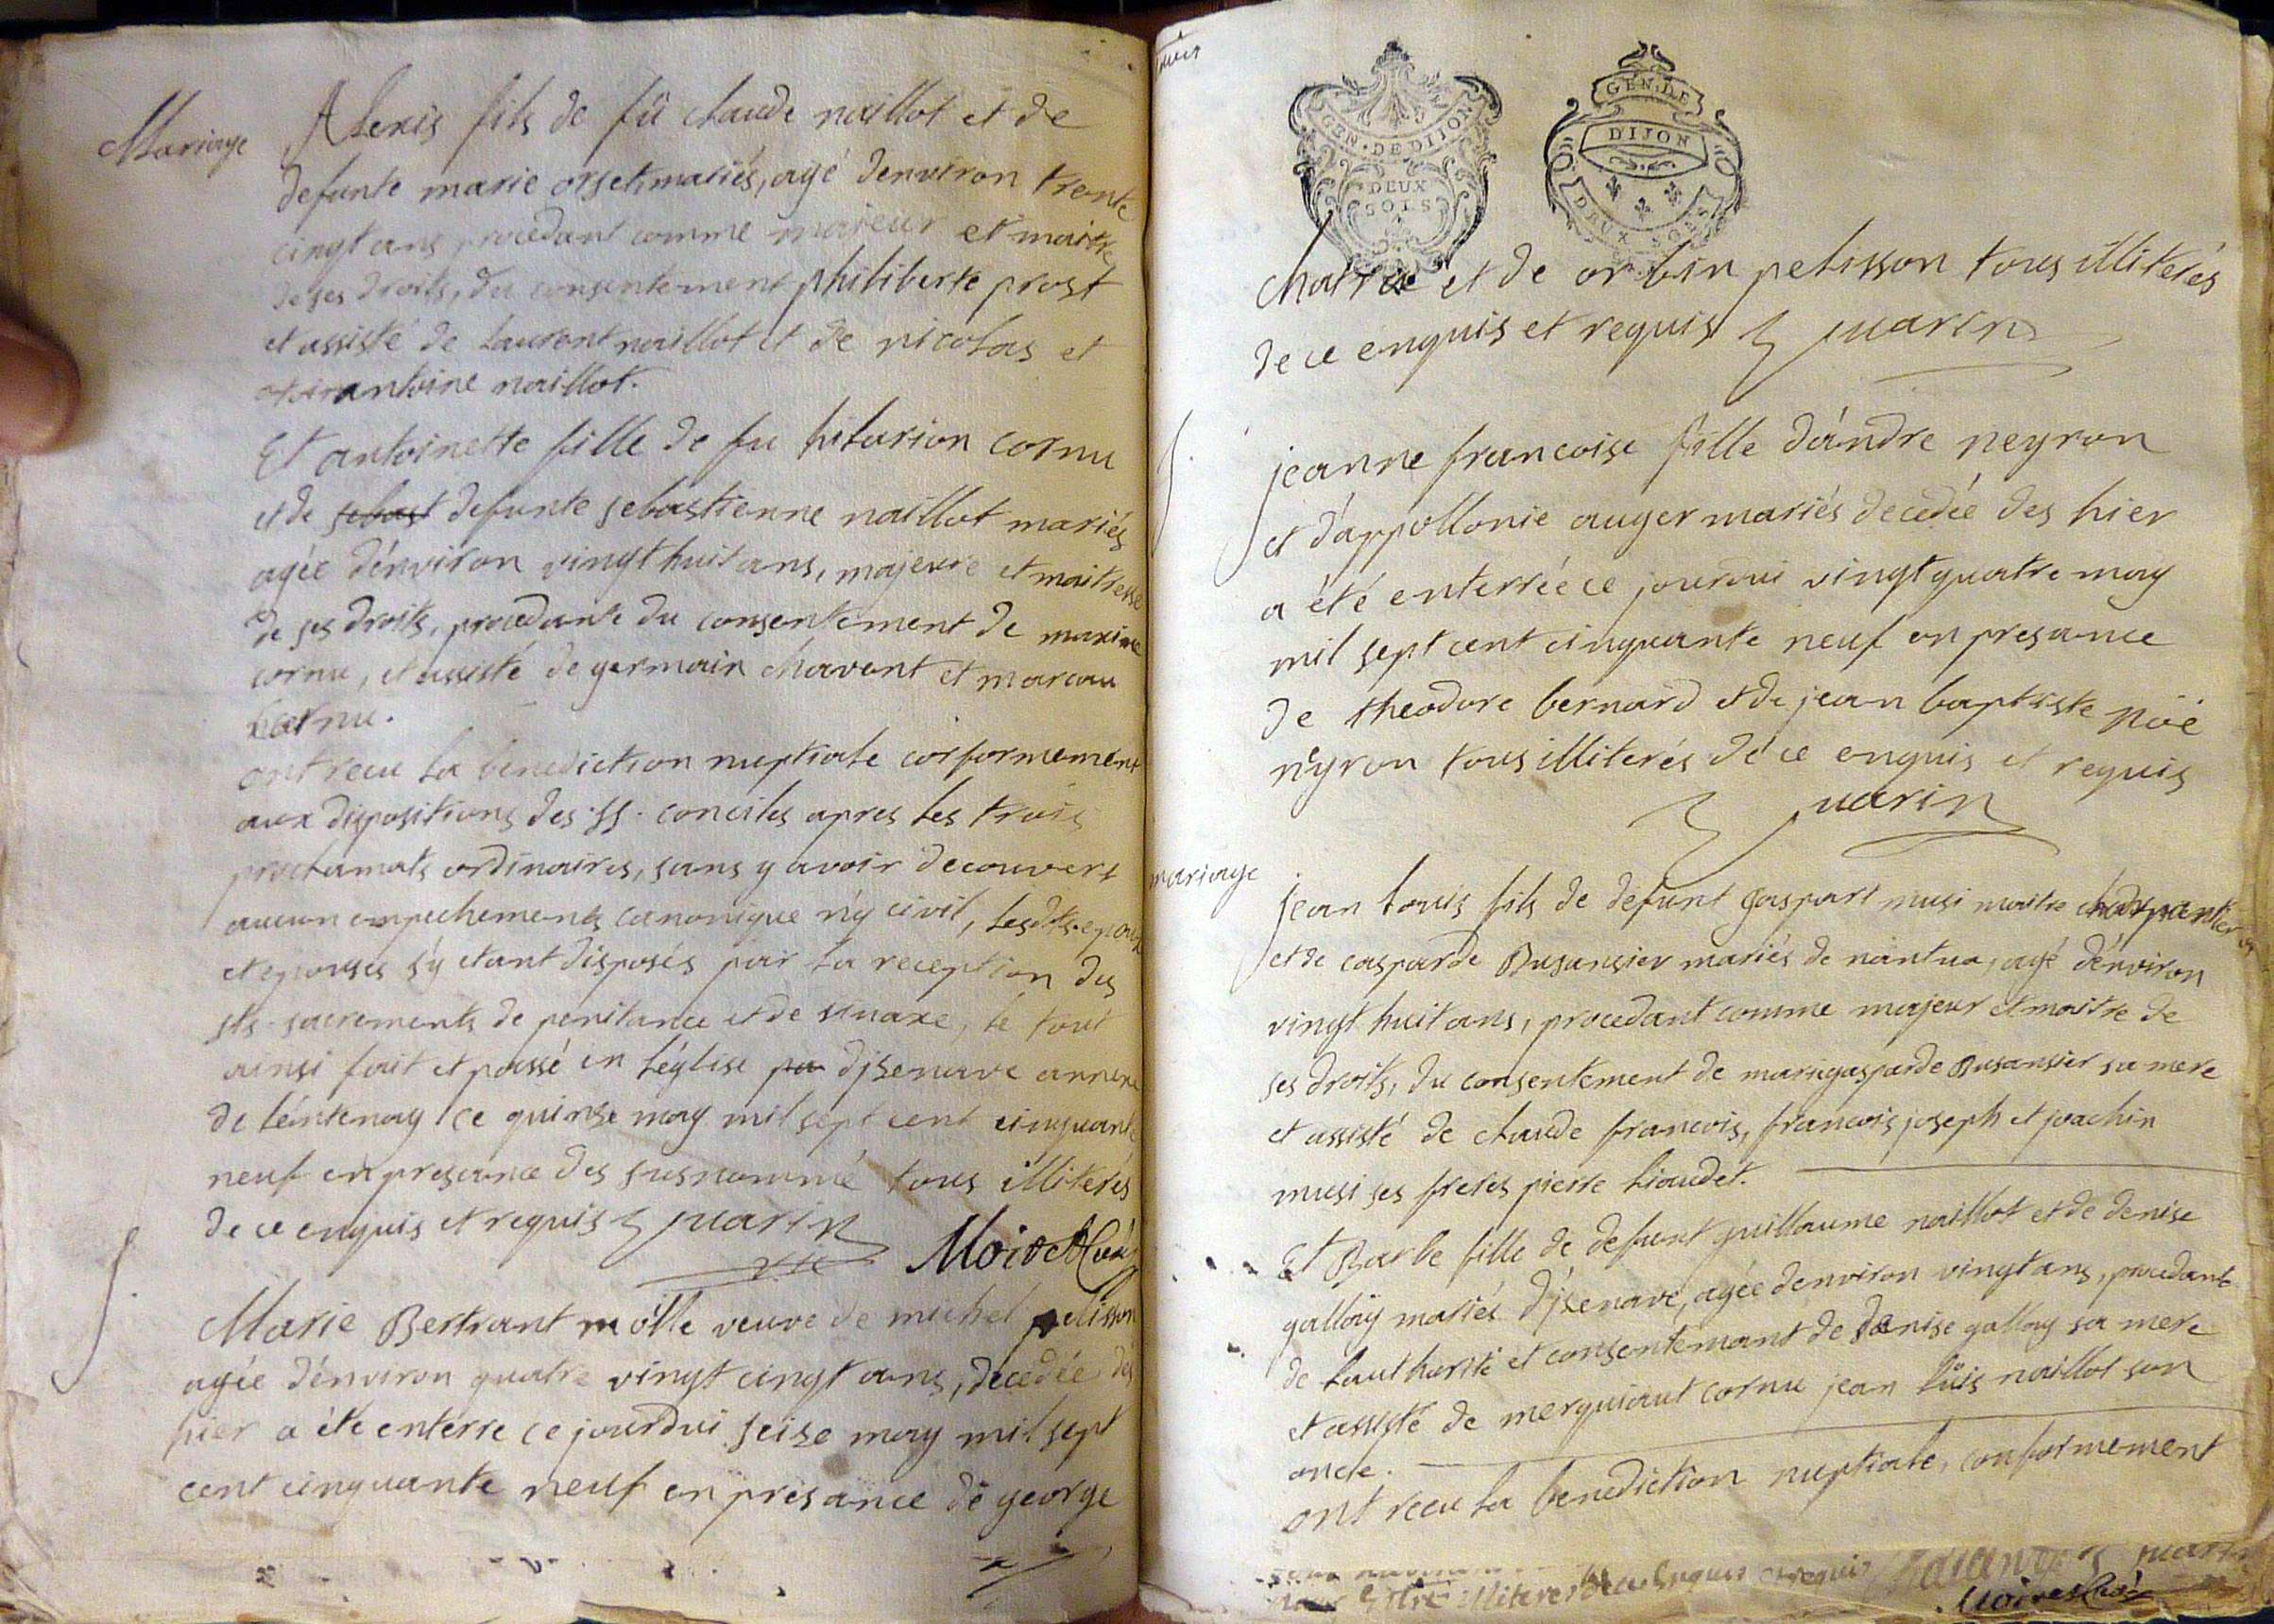 Mariage
Alexis fils de fû claude naillot et de
defunte marie orset mariés, agé denviron trente
cinqt ans procedant comme majeur et maitre
de ses droits, du consentement philiberte prost
et assisté de laurent naillot et de nicolas et
antoine naillot.
Et antoinette fille de fu hilarion cornu
et de sebast defunte sebastienne naillot mariés
agée d'environ vingt huit ans, majeure et maitresse
de ses droits, procedante du consentement de maxime
cornu, et assisté de germain chavent et marcau
cornu.
ont recu la benediction nuptiale conformement
aux dispositions des SS. conciles apres les trois
proclamats ordinaires, sans y avoir decouvert
aucun empechements canonique n'y civil, lesdts. epoux
et epouses s'y etant disposés par la reception des
sts. sacrements de penitance et de sinaxe, le tout
ainsi fait et passé en l'église pa d'jzenave annexe
de léntenay ce quinze may mil sept cent cinquante
neuf en presance des susnommé tous illiterés
de ce enquis et requis juarin
Marie Bertrant molle veuve de michel pelisson
agée d'environ quatre vingt cinqt ans, decedée dés
hier a éte enterre ce jourdui seize may mil sept
cent cinquante neuf en présance de george
GEN. DE DIJON
DEUX
SOLS
GEN. DE
DIJON
DEUX SOLS
chatrae et de orbin pelisson tous illiterés
de ce enquis et requis juarin
jeanne francoise fille d'ándre neyron
et d'appollonie auger mariés decedée des hier
a été enterrée ce jourdui vingt quatre may
mil sept cent cinquante neuf en presance
de theodore bernard et de jean baptiste noé
neyron tous illiterés de ce enquis et requis
juarin
mariage
jean louis fils de defunt gaspart musi maitre charpentier
et de casparde Busansier mariés de nantua, agé d'énviron
vingt huit ans, procedant comme majeur et maitre de
ses droits, du consentement de mariegasparde Busansier sa mere
et assisté de claude francois, francois joseph et joachin
musi ses freres pierre liaudet.
Et Barbe fille de defunt guillaume naillot et de denise
gallay mariés d'jzenave, agée denviron vingt ans, procedante
de lauthorité et consentemant de denise gallay sa mere
et assisté de merquiaut cornu jean luis naillot son
oncle.
ont recu la benediction nuptiale, conformement
illiteres de ce enquis et requis juarin